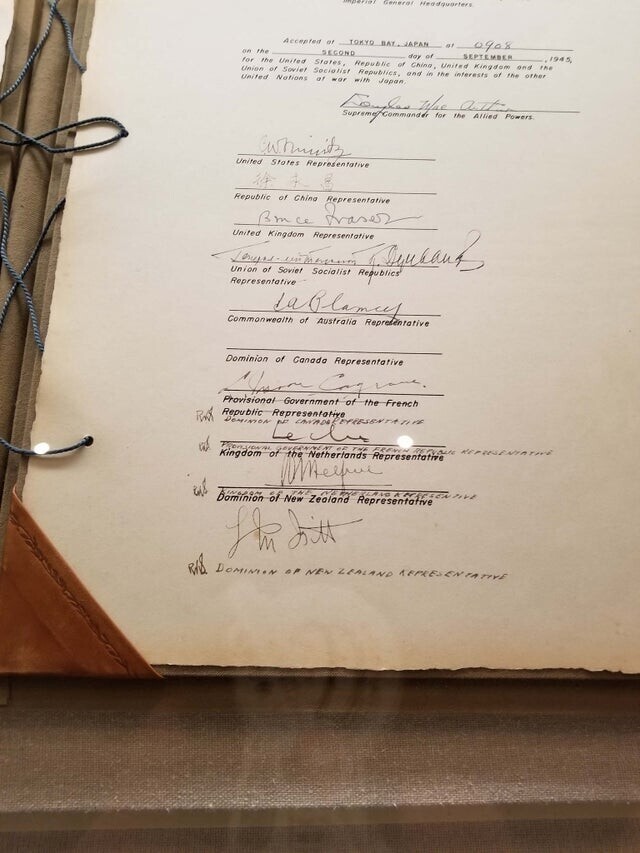 Imperial General Headquarters.
Accepted at TOKYO BAY, JAPAN at 0908
on the SECOND day of SEPTEMBER, 1945,
for the United States, Republic of China, United Kingdom and the
Union of Soviet Socialist Republics, and in the interests of the other
United Nations at war with Japan.
Douglas MacArthur
Supreme Commander for the Allied Powers.
CWNimitz
United States Representative
徐永昌
Republic of China Representative
Bruce Fraser
United Kingdom Representative
Union of Soviet Socialist Republics
Representative
TABlamey
Commonwealth of Australia Representative
Dominion of Canada Representative
L. Moore Cosgrave.
Provisional Government of the French
Republic Representative
DOMINION OF CANADA REPRESENTATIVE
Leclerc
PROVISIONAL GOVERNMENT OF THE FRENCH REPUBLIC REPRESENTATIVE
Kingdom of the Netherlands Representative
KINGDOM OF THE NETHERLANDS REPRESENTATIVE
Dominion of New Zealand Representative
L M Isitt
DOMINION OF NEW ZEALAND REPRESENTATIVE